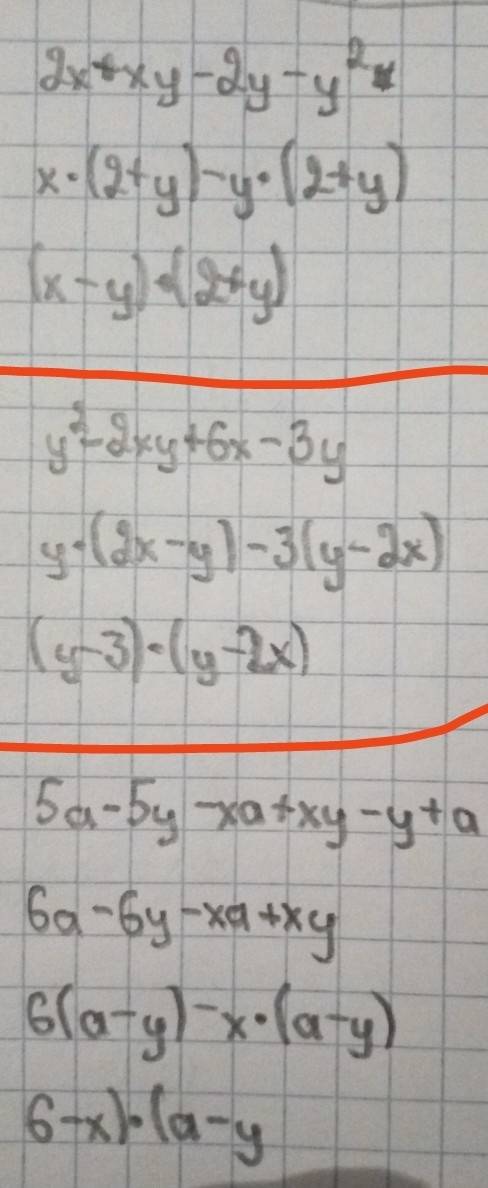 2x+xy-2y-y²
x·(2+y)-y·(2+y)
(x-y)·(2+y)
y²-2xy+6x-3y
y·(2x-y)-3(y-2x)
(y-3)·(y-2x)
5a-5y-xa+xy-y+a
6a-6y-xa+xy
6(a-y)-x·(a-y)
6-x)·(a-y